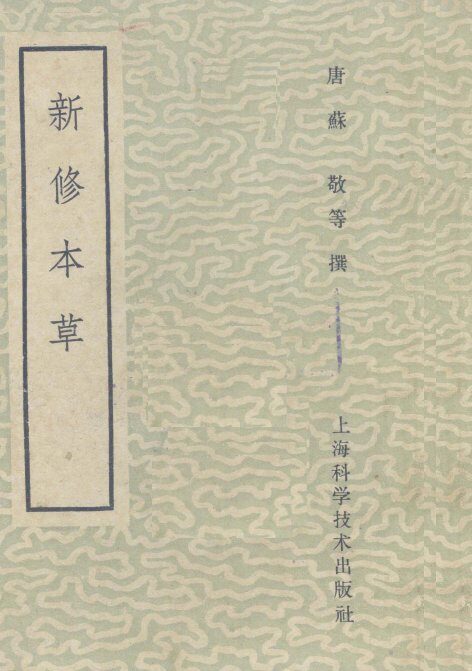 新修本草
唐蘇敬等撰
上海科学技术出版社